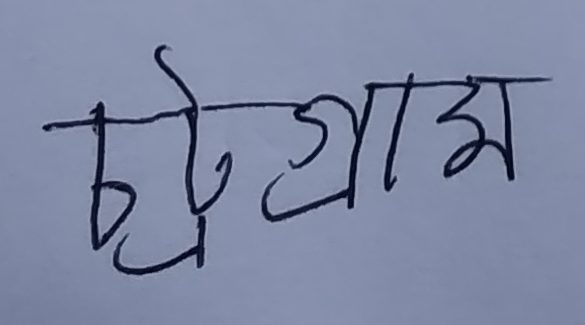 চট্রগ্রাম